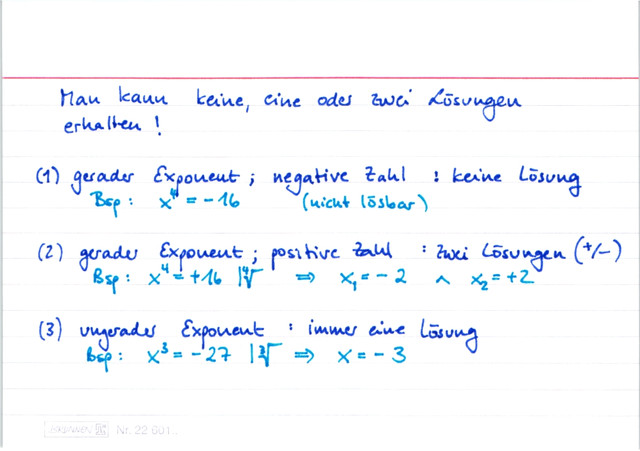 Man kann keine, eine oder zwei Lösungen
erhalten!
(1) gerader Exponent; negative Zahl : keine Lösung
Bsp: x⁴ = -16 (nicht lösbar)
(2) gerader Exponent; positive Zahl : zwei Lösungen (+/-)
Bsp: x⁴ = +16 |⁴√ ⇒ x₁ = -2 ∧ x₂ = +2
(3) ungerader Exponent : immer eine Lösung
Bsp: x³ = -27 |³√ ⇒ x = -3
BRUNNEN Nr. 22 601..